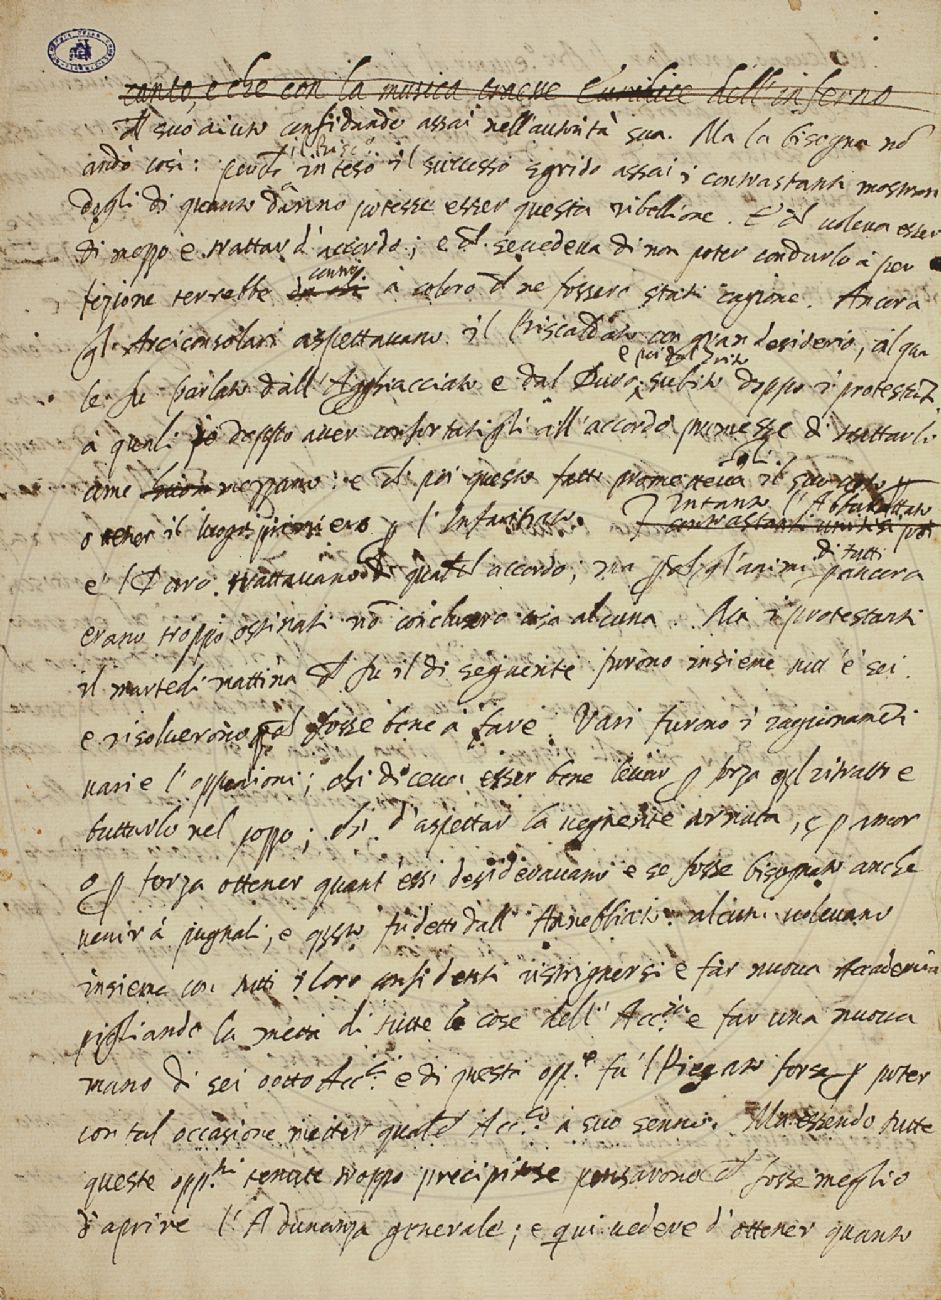 canto, e che con la musica trasse Euridice dell'inferno
suo aiuto confidando assai nell'autorità sua. Ma la bisogna nō
andò così: inteso il successo sgridò assai i contrastanti mostran
dogli di quanto danno potesse esser questa ribellione. voleva esser
di mezzo e trattar d'accordo; e se vedeva di non poter condurlo a per
fezione terrebbe conto à coloro ne fossero stati cagione. Ancora
gl'Arciconsolari aspettavano il Riscaldato con gran desiderio, al qua
le fu parlato dall'Agghiacciato e dal Duro, e poi subito doppo i protestāti
à quali doppo aver confortatigli all'accordo promesse di trattarlo
come mezzano: e poi questo fatto prometteva il suo voto
o tener il luogo primiero p l'Infarinato. Intanto l'Abburattato
contrastanti
e 'l Duro trattavano accordo; ma gl'animi di tutti p ancora
erano troppo ostinati nō conclusero cosa alcuna. Ma i protestanti
il martedì mattina fu il dì seguente furono insieme tutt'e sei
e risolverono fosse bene à fare. Vari furono i ragionamēti
varie l'oppenioni; chi diceva esser bene levar p forza ritratto e
buttarlo nel pozzo; chi d'aspettar la vegnente tornata, e p amor
o p forza ottener quant'essi desideravano e se fosse bisognato anche
venir à pugnali, e fu detto dall'Annebbiato. alcuni volevano
insieme con tutti i loro confidenti ristrignersi e far nuova Accademia
pigliando la metà di tutte le cose dell'Acc.ia e far una nuova
mano di sei o otto Acc.ci e di questa opp.e fù 'l Piegato forse p poter
con tal occasione metter qualche Acc.co à suo senno. Ma essendo tutte
queste opp.ni tenute troppo precipitose pensarono fosse meglio
d'aprire l'Adunanza generale; e qui vedere d'ottener quanto